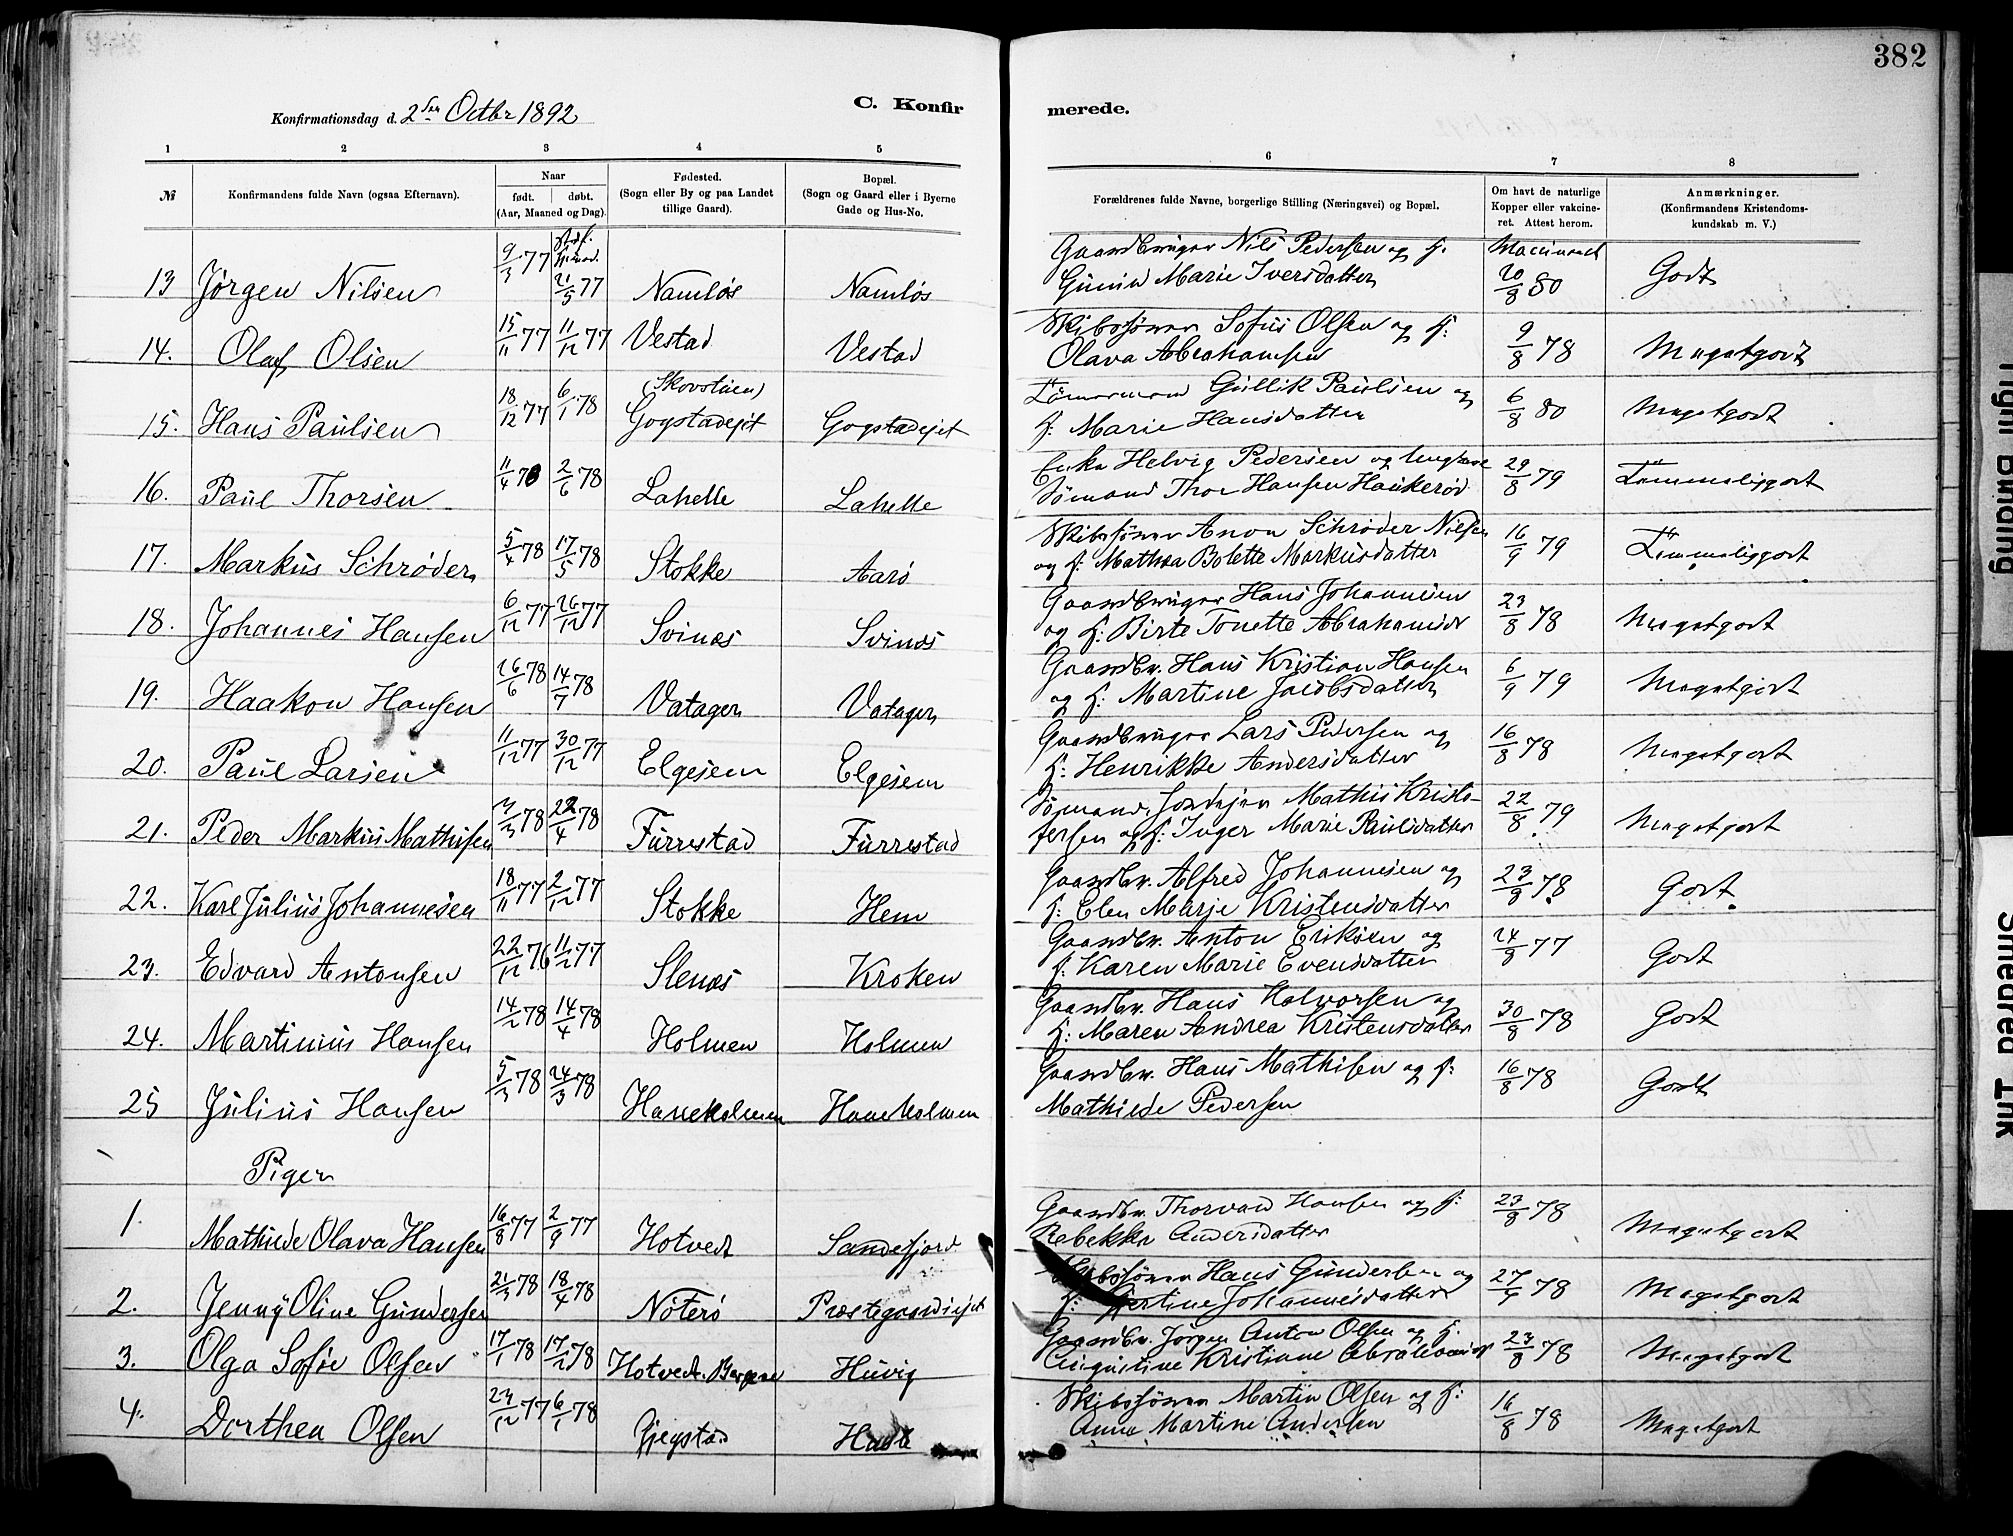 382
C. Konfir
merede.
Konfirmationsdag d. 2den Octbr 1892
1 2 3 4 5 6 7 8
№
Konfirmandens fulde Navn (ogsaa Efternavn).
Naar
født. døbt.
(Aar, Maaned og Dag).
Fødested.
(Sogn eller By og paa Landet
tillige Gaard).
Bopæl.
(Sogn og Gaard eller i Byerne
Gade og Hus-No.
Forældrenes fulde Navne, borgerlige Stilling (Næringsvei) og Bopæl.
Om havt de naturlige
Kopper eller vakcine-
ret. Attest herom.
Anmærkninger.
(Konfirmandens Kristendoms-
kundskab m. V.)
13 Jørgen Nilsen 9/3 77 21/5 77 Namløs Namløs Gaardbruger Nils Pedersen og H. Gunild Marie Iversdatter Vaccineret 20/8 80 Godt
14. Olaf Olsen 15/11 77 11/12 77 Vestad Vestad Skibstømrer Sofus Olsen og H: Olava Abrahamsen 9/8 78 Megetgodt
15. Hans Paulsen 18/12 77 6/1 78 (Skovstuen) Gogstadejet Gogstadejet Tømmermand Gullik Paulsen og H: Marie Hansdatter 6/8 80 Megetgodt
16. Paul Thorsen 11/4 78 2/6 78 Lahelle Lahelle Enke Helvig Pedersen og Ungkarl Sømand Thor Hansen Haukerød 29/8 79 Temmeliggodt
17. Markus Schrøder 5/4 78 17/5 78 Stokke Aarø Skibstømrer Anon Schrøder Nilsen og H. Mathea Bolette Markusdatter 16/9 79 Temmeliggodt
18. Johannes Hansen 6/12 77 26/12 77 Svinæs Svinæs Gaardbruger Hans Johannesen og H: Birte Tonette Abrahamsdr 23/8 78 Megetgodt
19. Haakon Hansen 26/6 78 14/7 78 Vatager Vatager Gaardbr. Hans Kristian Hansen og H: Martine Jacobsdatter 6/9 79 Megetgodt
20. Paul Larsen 11/12 77 30/12 77 Elgesem Elgesem Gaardbruger Lars Pedersen og H: Henrikke Andersdatter 16/8 78 Megetgodt
21. Peder Markus Mathisen 3/3 78 22/4 78 Furrestad Furrestad Sømand, Jordejer Mathis Kristofersen og H. Inger Marie Paulsdatter 22/8 79 Megetgodt
22. Karl Julius Johannesen 18/11 77 2/12 77 Stokke Hem Gaardbr. Alfred Johannesen og H: Elen Marje Kristensdatter 23/9 78 Godt
23. Edvard Antonsen 22/12 76 11/2 77 Slenæs Kroken Gaardbr. Anton Eriksen og H. Karen Marie Evensdatter 24/8 77 Godt
24. Martinius Hansen 14/2 78 14/4 78 Holmen Holmen Gaardbr. Hans Halvorsen og H: Maren Andrea Kristensdatter 30/8 78 Godt
25 Julius Hansen 5/3 78 24/3 78 Haneholmen Haneholmen Gaardbr. Hans Mathisen og H: Mathilde Pedersen 16/8 78 Godt
Piger
1. Mathilde Olava Hansen 16/8 77 2/9 77 Hotvedt Sandefjord Gaardbr. Thorvald Hansen og H: Rebekka Andersdatter 23/8 78 Megetgodt
2. Jenny Oline Gundersen 21/3 78 18/4 78 Nøterø Præstegaardsejet Skibstømrer Hans Gundersen og H: Johannesdatter 27/9 78 Megetgodt
3. Olga Sofie Olsen 17/1 78 17/2 78 Hotvedt Bergene Huvig Gaardbr. Jørgen Anton Olsen og H. Augustine Kristiane Abrahamsdr 23/8 78 Megetgodt
4. Dorthea Olsen 23/12 77 6/1 78 Gjegstad Skibstømrer Martin Olsen og H: Anne Martine Andersen 16/8 78 Megetgodt
Tight Binding
Smeared Ink